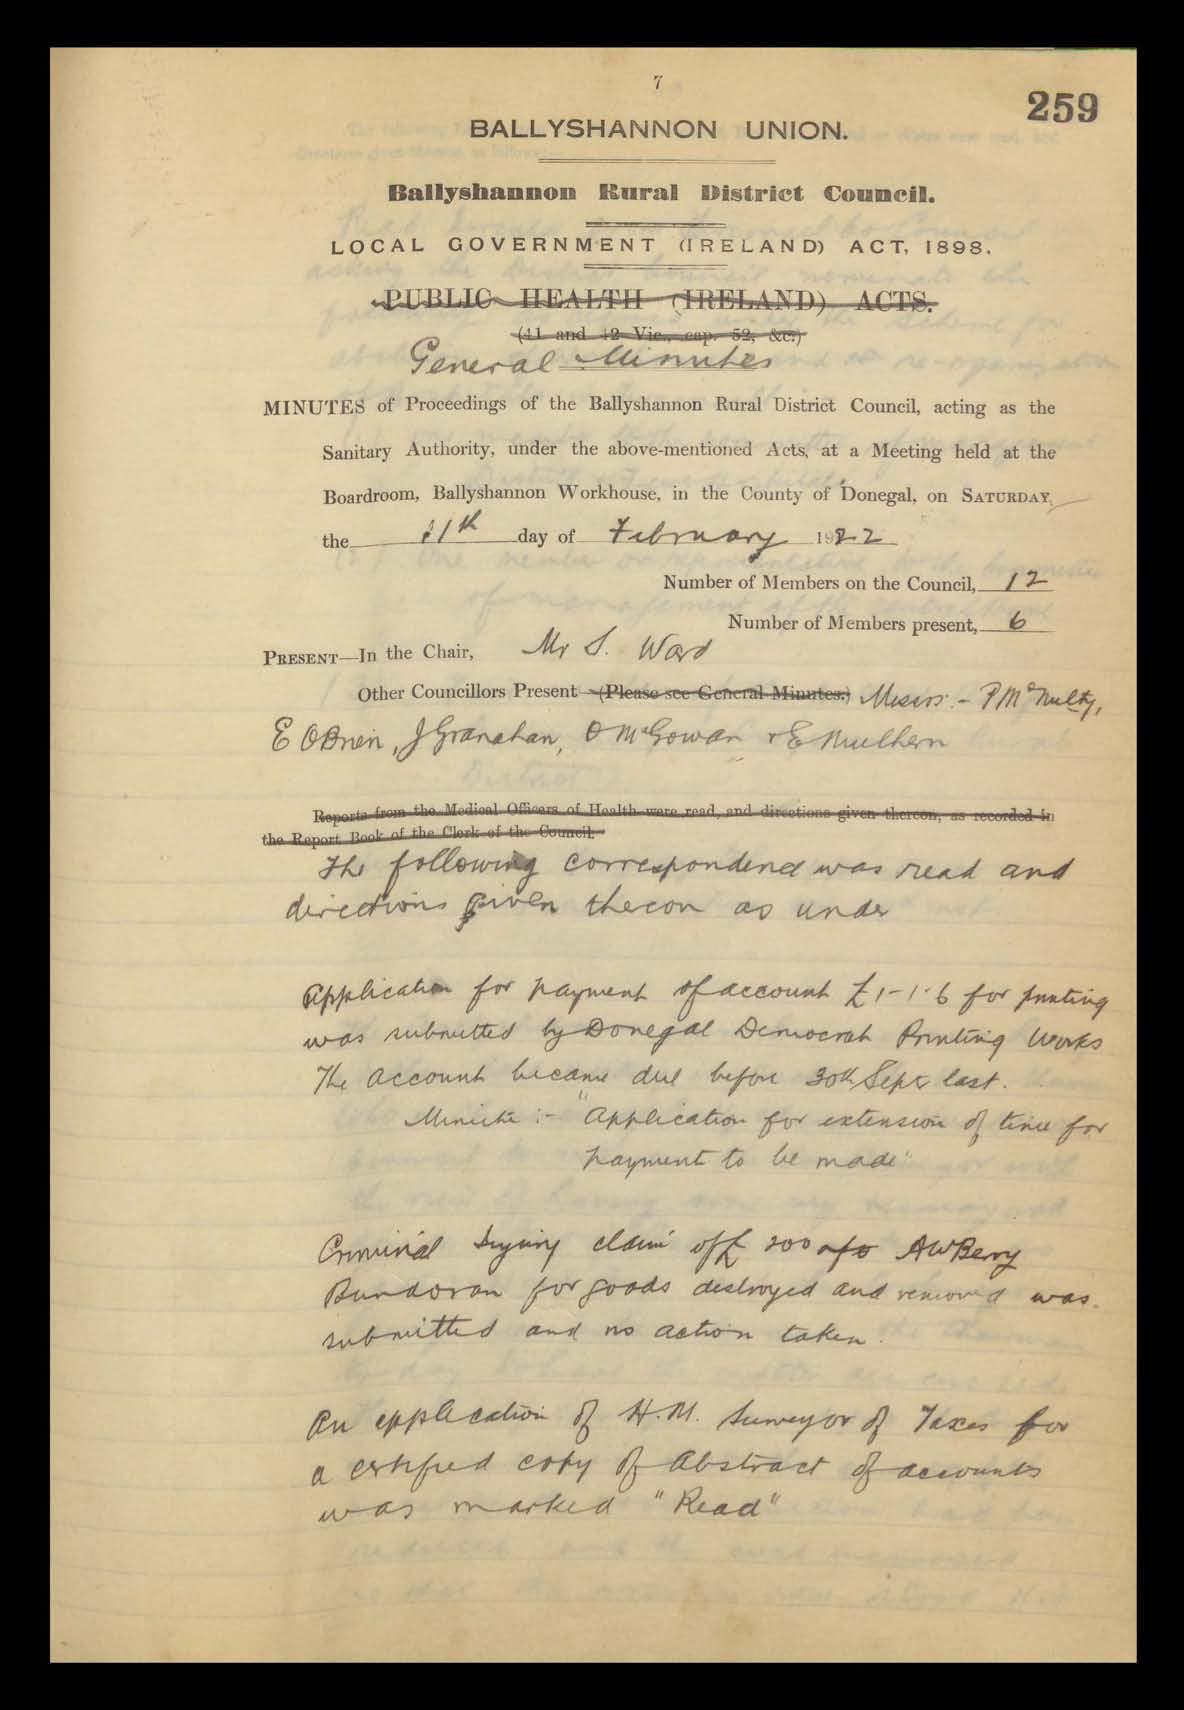 7
259
BALLYSHANNON UNION.
Ballyshannon Rural District Council.
LOCAL GOVERNMENT (IRELAND) ACT, 1898.
PUBLIC HEALTH (IRELAND) ACTS.
(41 and 42 Vic., cap. 52, &c.)
General Minutes
MINUTES of Proceedings of the Ballyshannon Rural District Council, acting as the
Sanitary Authority, under the above-mentioned Acts, at a Meeting held at the
Boardroom, Ballyshannon Workhouse, in the County of Donegal, on SATURDAY,
the 11th day of February 1922
Number of Members on the Council, 12
Number of Members present, 6
PRESENT—In the Chair, Mr S. Ward
Other Councillors Present—(Please see General Minutes.) Messrs:- P McNulty,
E OBrien, J Granahan, O McGowan & E Mulhern
Reports from the Medical Officers of Health were read, and directions given thereon, as recorded in
the Report Book of the Clerk of the Council.
The following correspondence was read and
directions given thereon as under
Application for payment of account £1-1-6 for printing
was submitted by Donegal Democrat Printing Works
The account became due before 30th Sept last.
Minute:- "Application for extension of time for
payment to be made"
Criminal Injury claim of £200 A W Berry
Bundoran for goods destroyed and removed was
submitted and no action taken.
An application of H.M. Surveyor of Taxes for
a certified copy of Abstract of accounts
was marked "Read"